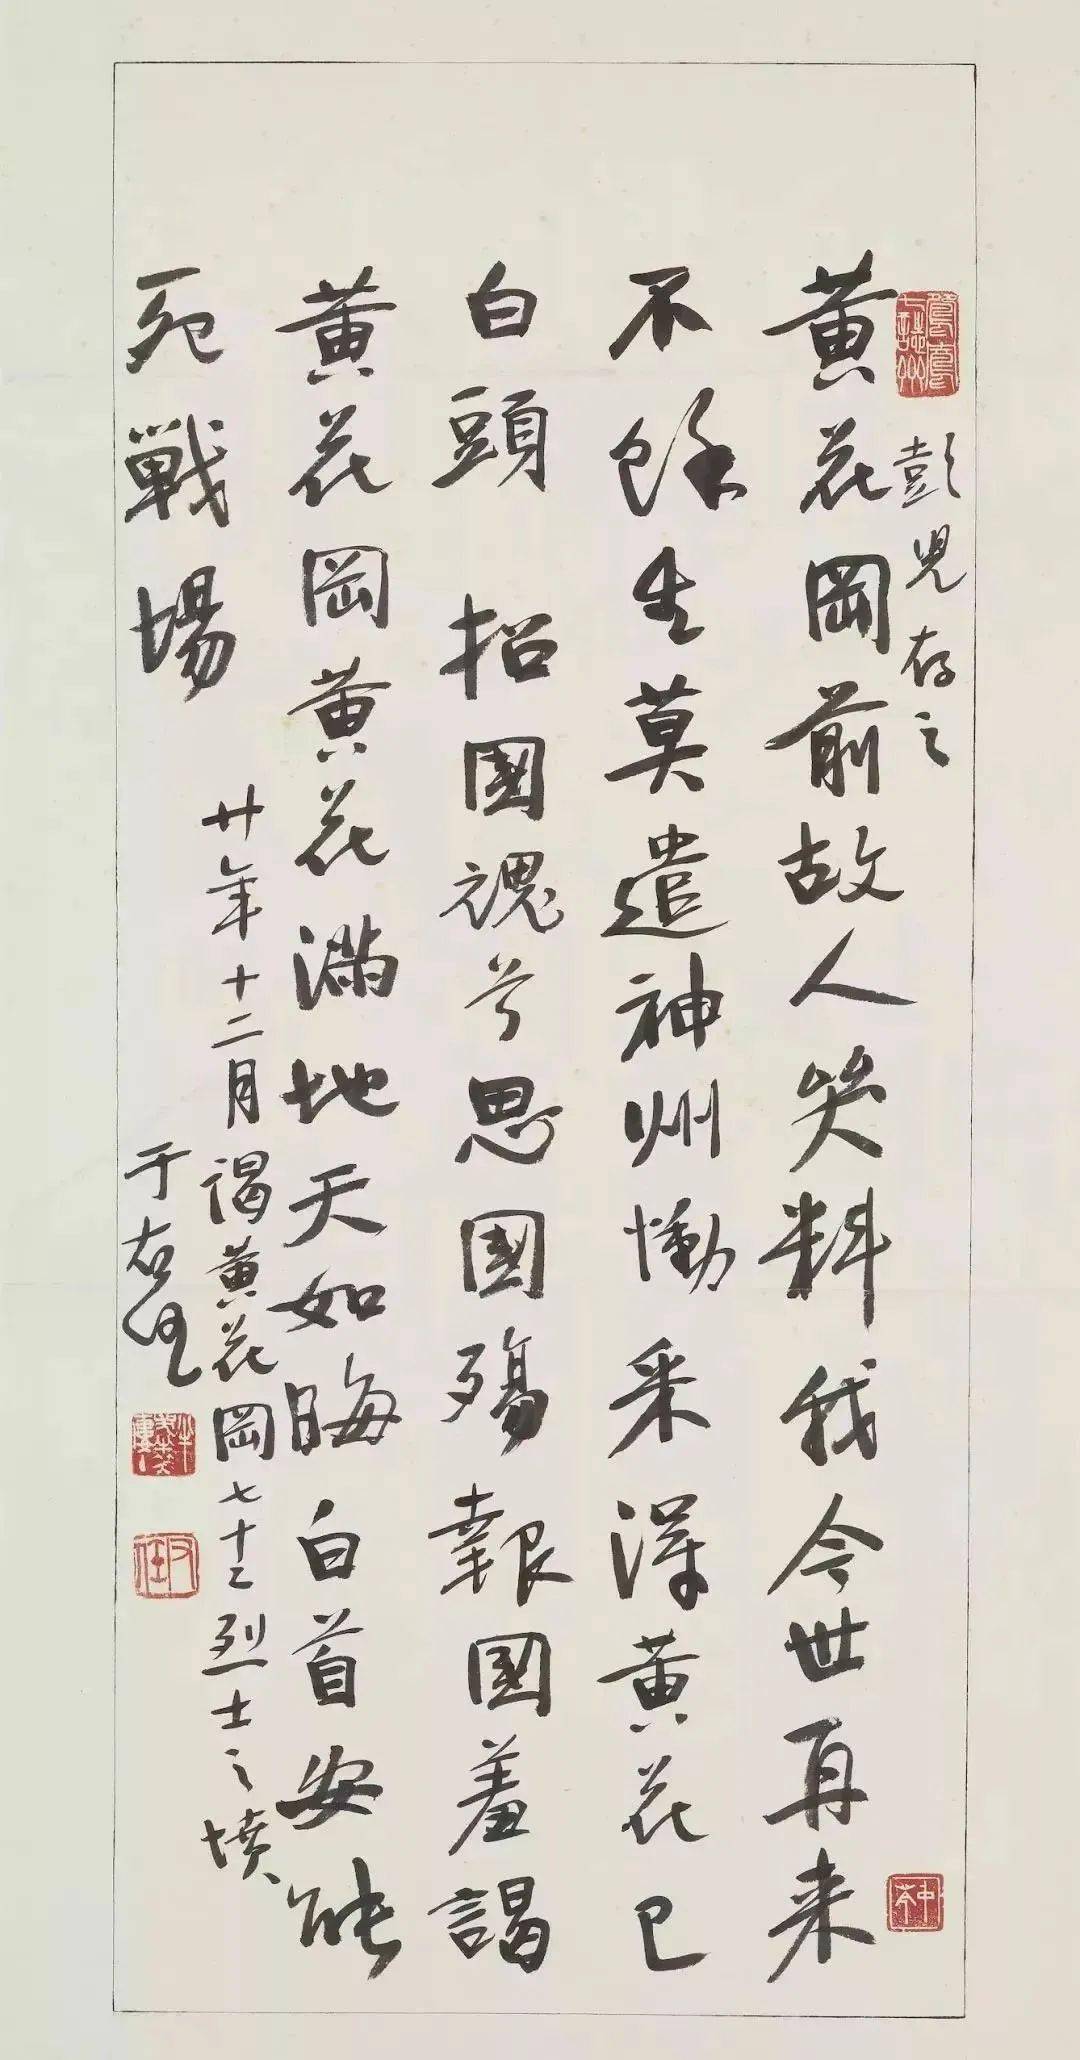 彭兒存之
黃花岡前故人笑料我今世再来
不餘生莫遣神州慟采得黃花已
白頭 招國魂兮思國殤報國羞謁
黃花岡黃花滿地天如晦白首安能
死戰場
廿年十二月謁黃花岡七十二烈士之墳
于右任
右任